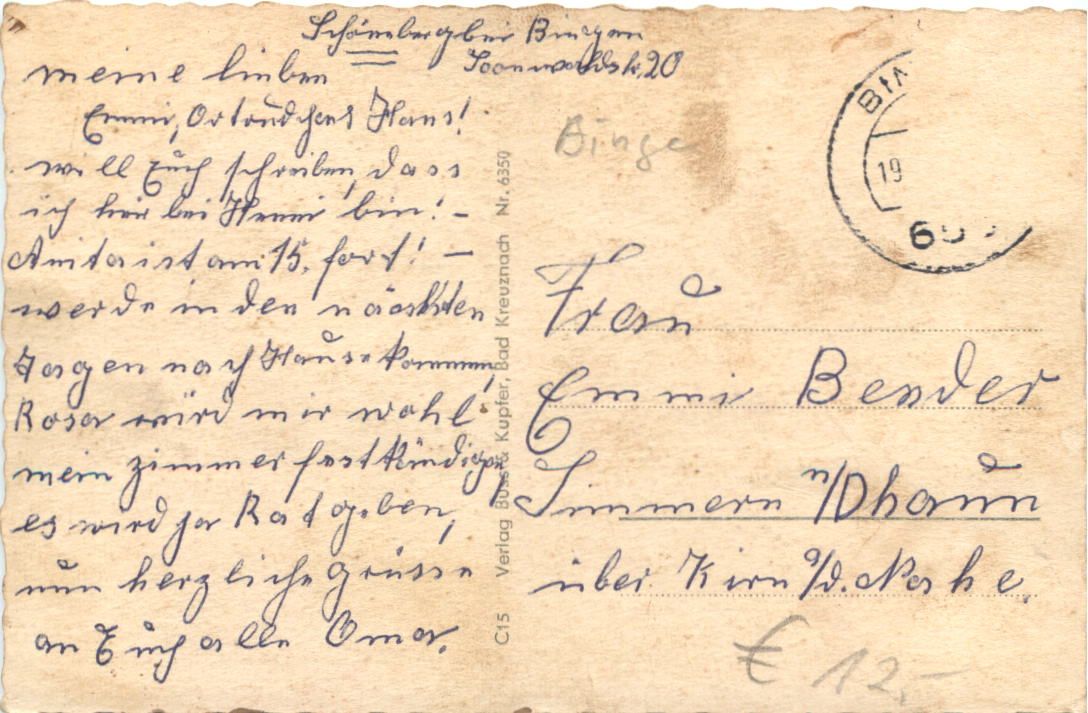 Schömberg bei Bingen
Soonwaldstr. 20
meine lieben
Emmi, Ortrudchen & Hans!
will Euch schreiben, dass
ich hier bei Henni bin! –
Anita ist am 15. fort! –
werde in den nächsten
Tagen nach Hause kommen,
Rosa würd mir wohl
mein Zimmer fest kündigen,
es wird ja Rat geben,
nun herzliche Grüsse
an Euch alle Oma.
C15 Verlag Buss & Kupfer, Bad Kreuznach Nr. 6350
Binge
BIN
19
65
Frau
Emmi Bender
Simmern n/Dhaun
über Kirn a/d. Nahe.
€ 12,-